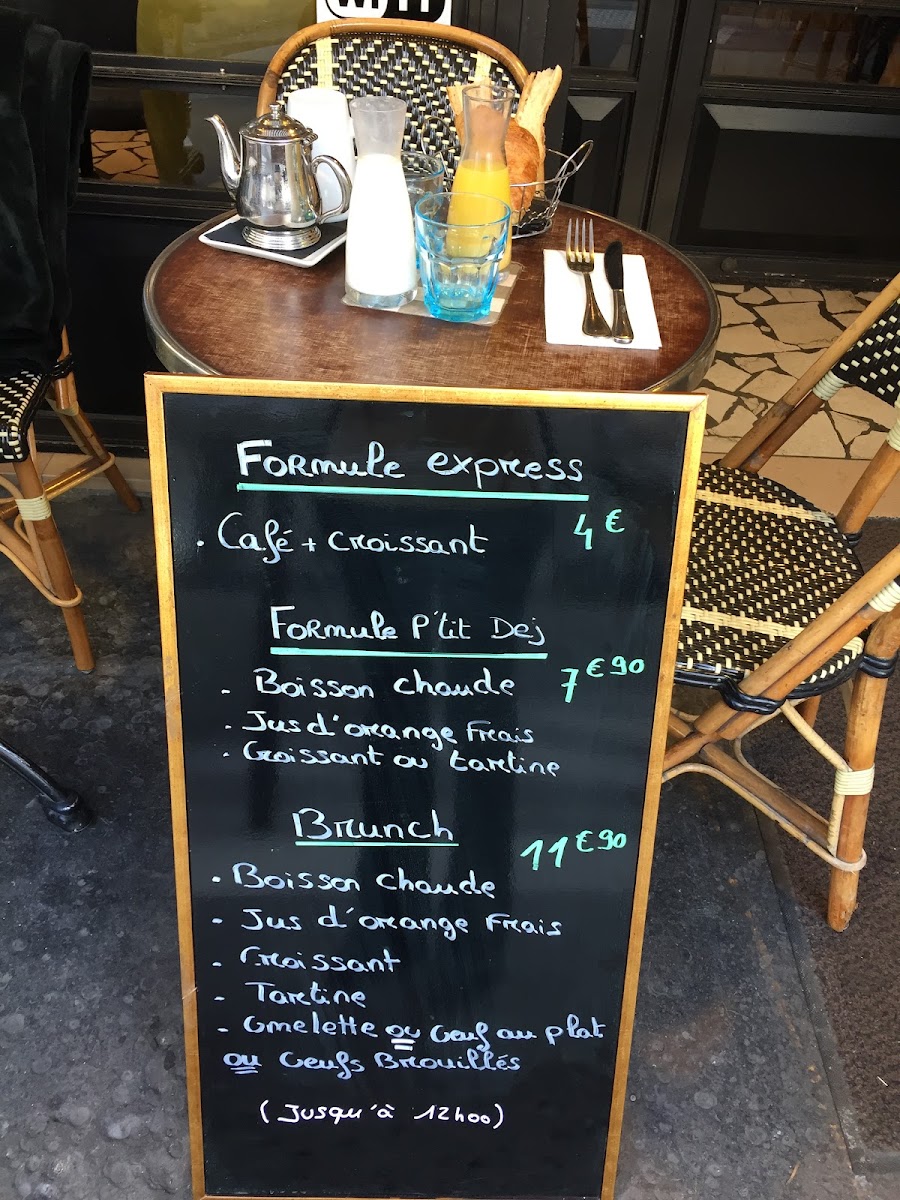 WIFI
Formule express
. Café + croissant 4€
Formule P'tit Dej
- Boisson chaude 7€90
- Jus d'orange Frais
- Croissant ou tartine
Brunch
11€90
- Boisson chaude
- Jus d'orange Frais
- Croissant
- Tartine
- Omelette ou Oeuf au plat
ou Oeufs Brouillés
(Jusqu'à 12h00)